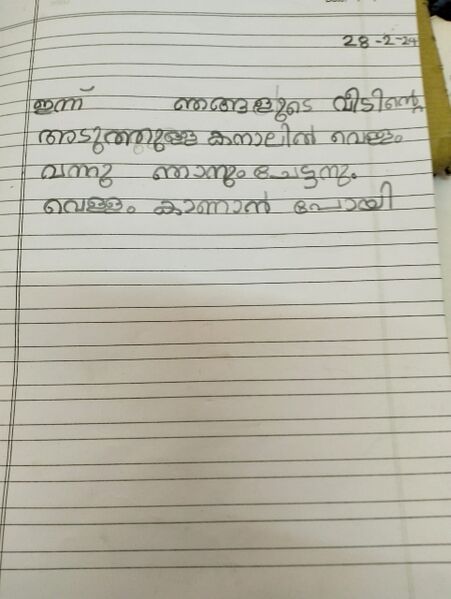 28-2-24
ഇന്ന് ഞങ്ങളുടെ വീടിന്റെ
അടുത്തുള്ള കനാലിൽ വെള്ളം
വന്നു ഞാനും ചേട്ടനും
വെള്ളം കാണാൻ പോയി